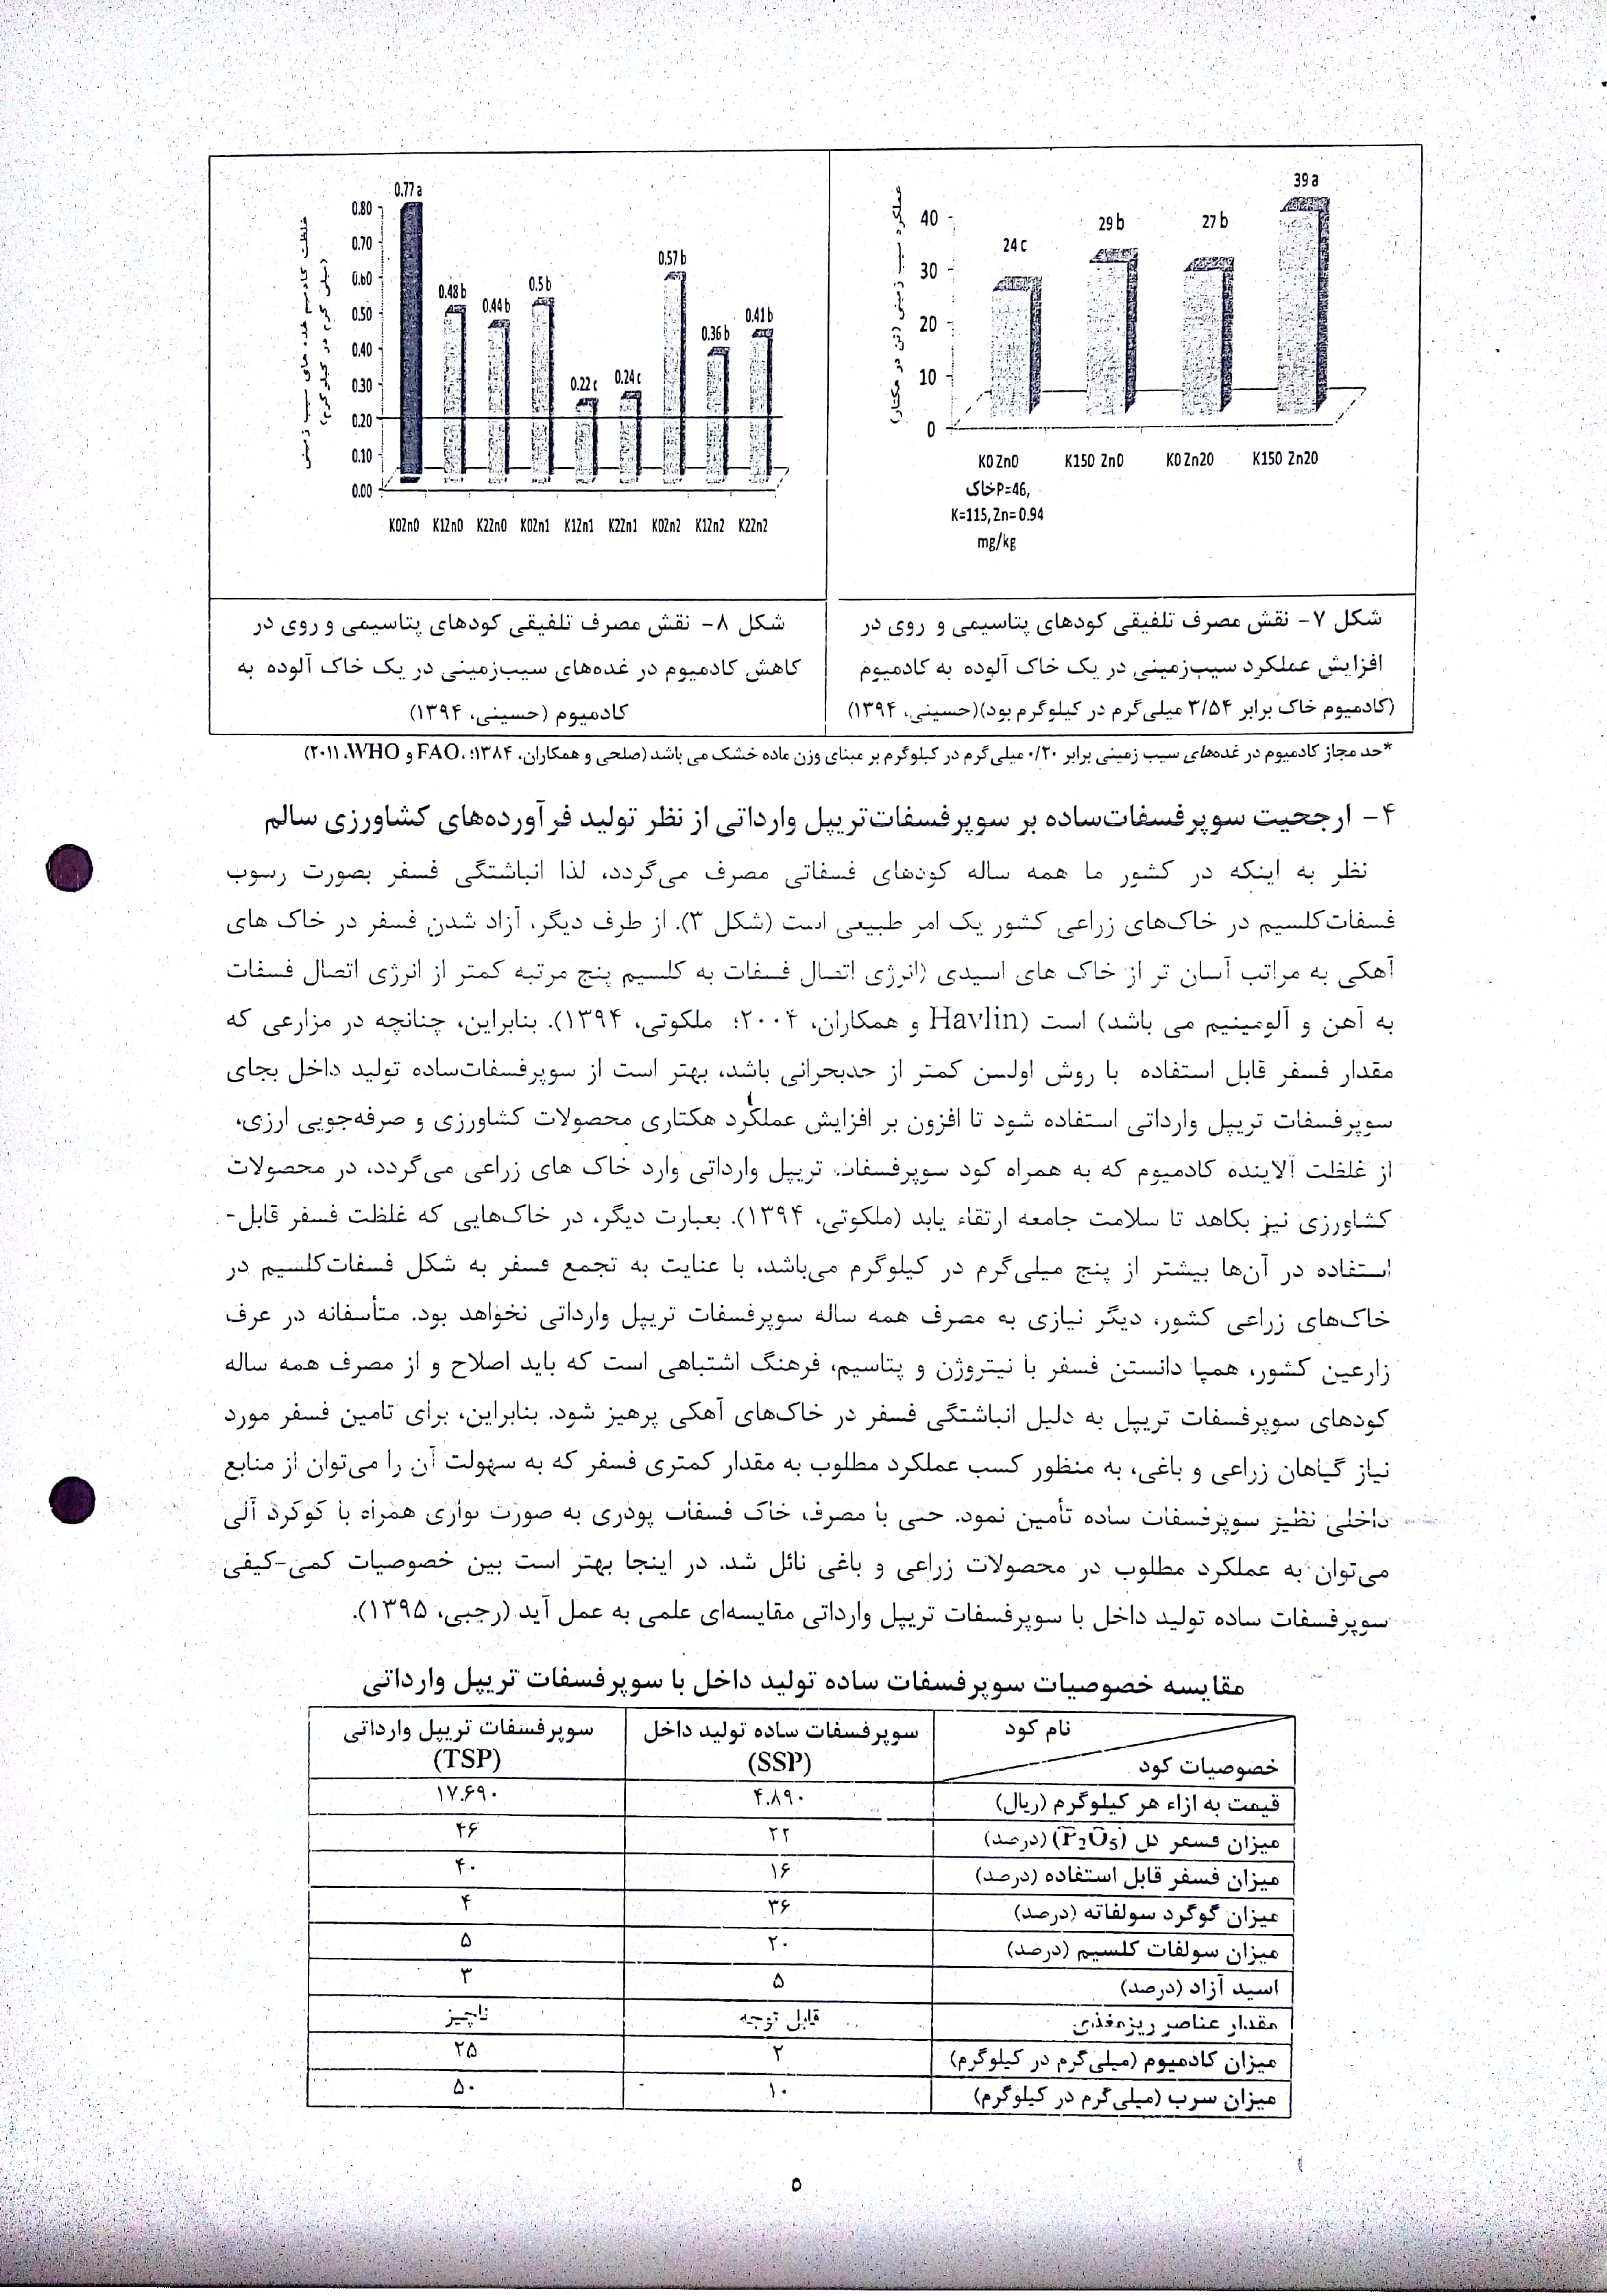 عملکرد سیب زمینی (تن در هکتار)
40
30
20
10
0
24 c
29 b
27 b
39 a
K0 Zn0
K150 Zn0
K0 Zn20
K150 Zn20
خاک P=46,
K=115, Zn=0.94
mg/kg
غلظت کادمیم غده های سیب زمینی
(میلی گرم در کیلوگرم)
0.80
0.70
0.60
0.50
0.40
0.30
0.20
0.10
0.00
0.77 a
0.48 b
0.44 b
0.5 b
0.22 c
0.24 c
0.57 b
0.36 b
0.41 b
K0Zn0 K1Zn0 K2Zn0 K0Zn1 K1Zn1 K2Zn1 K0Zn2 K1Zn2 K2Zn2
شکل ۷- نقش مصرف تلفیقی کودهای پتاسیمی و روی در
افزایش عملکرد سیب‌زمینی در یک خاک آلوده به کادمیوم
(کادمیوم خاک برابر ۳/۵۴ میلی‌گرم در کیلوگرم بود)(حسینی، ۱۳۹۴)
شکل ۸- نقش مصرف تلفیقی کودهای پتاسیمی و روی در
کاهش کادمیوم در غده‌های سیب‌زمینی در یک خاک آلوده به
کادمیوم (حسینی، ۱۳۹۴)
*حد مجاز کادمیوم در غده‌های سیب زمینی برابر ۰/۲۰ میلی‌گرم در کیلوگرم بر مبنای وزن ماده خشک می باشد (صلحی و همکاران، ۱۳۸۴؛ FAO، و WHO، ۲۰۱۱)
۴- ارجحیت سوپرفسفات‌ساده بر سوپرفسفات‌تریپل وارداتی از نظر تولید فرآورده‌های کشاورزی سالم
نظر به اینکه در کشور ما همه ساله کودهای فسفاتی مصرف می‌گردد، لذا انباشتگی فسفر بصورت رسوب
فسفات‌کلسیم در خاک‌های زراعی کشور یک امر طبیعی است (شکل ۳). از طرف دیگر، آزاد شدن فسفر در خاک های
آهکی به مراتب آسان تر از خاک های اسیدی (انرژی اتصال فسفات به کلسیم پنج مرتبه کمتر از انرژی اتصال فسفات
به آهن و آلومینیم می باشد) است (Havlin و همکاران، ۲۰۰۴؛ ملکوتی، ۱۳۹۴). بنابراین، چنانچه در مزارعی که
مقدار فسفر قابل استفاده با روش اولسن کمتر از حدبحرانی باشد، بهتر است از سوپرفسفات‌ساده تولید داخل بجای
سوپرفسفات تریپل وارداتی استفاده شود تا افزون بر افزایش عملکرد هکتاری محصولات کشاورزی و صرفه‌جویی ارزی،
از غلظت آلاینده کادمیوم که به همراه کود سوپرفسفات تریپل وارداتی وارد خاک های زراعی می‌گردد، در محصولات
کشاورزی نیز بکاهد تا سلامت جامعه ارتقاء یابد (ملکوتی، ۱۳۹۴). بعبارت دیگر، در خاک‌هایی که غلظت فسفر قابل-
استفاده در آن‌ها بیشتر از پنج میلی‌گرم در کیلوگرم می‌باشد، با عنایت به تجمع فسفر به شکل فسفات‌کلسیم در
خاک‌های زراعی کشور، دیگر نیازی به مصرف همه ساله سوپرفسفات تریپل وارداتی نخواهد بود. متأسفانه در عرف
زارعین کشور، همپا دانستن فسفر با نیتروژن و پتاسیم، فرهنگ اشتباهی است که باید اصلاح و از مصرف همه ساله
کودهای سوپرفسفات تریپل به دلیل انباشتگی فسفر در خاک‌های آهکی پرهیز شود. بنابراین، برای تامین فسفر مورد
نیاز گیاهان زراعی و باغی، به منظور کسب عملکرد مطلوب به مقدار کمتری فسفر که به سهولت آن را می‌توان از منابع
داخلی نظیر سوپرفسفات ساده تأمین نمود. حتی با مصرف خاک فسفات پودری به صورت نواری همراه با گوگرد آلی
می‌توان به عملکرد مطلوب در محصولات زراعی و باغی نائل شد. در اینجا بهتر است بین خصوصیات کمی-کیفی
سوپرفسفات ساده تولید داخل با سوپرفسفات تریپل وارداتی مقایسه‌ای علمی به عمل آید (رجبی، ۱۳۹۵).
مقایسه خصوصیات سوپرفسفات ساده تولید داخل با سوپرفسفات تریپل وارداتی
نام کود
خصوصیات کود
سوپرفسفات ساده تولید داخل
(SSP)
سوپرفسفات تریپل وارداتی
(TSP)
قیمت به ازاء هر کیلوگرم (ریال) ۴.۸۹۰ ۱۷.۶۹۰
میزان فسفر کل (P₂O₅) (درصد) ۲۲ ۴۶
میزان فسفر قابل استفاده (درصد) ۱۶ ۴۰
میزان گوگرد سولفاته (درصد) ۳۶ ۴
میزان سولفات کلسیم (درصد) ۲۰ ۵
اسید آزاد (درصد) ۵ ۳
مقدار عناصر ریزمغذی قابل توجه ناچیز
میزان کادمیوم (میلی‌گرم در کیلوگرم) ۲ ۲۵
میزان سرب (میلی‌گرم در کیلوگرم) ۱۰ ۵۰
۵